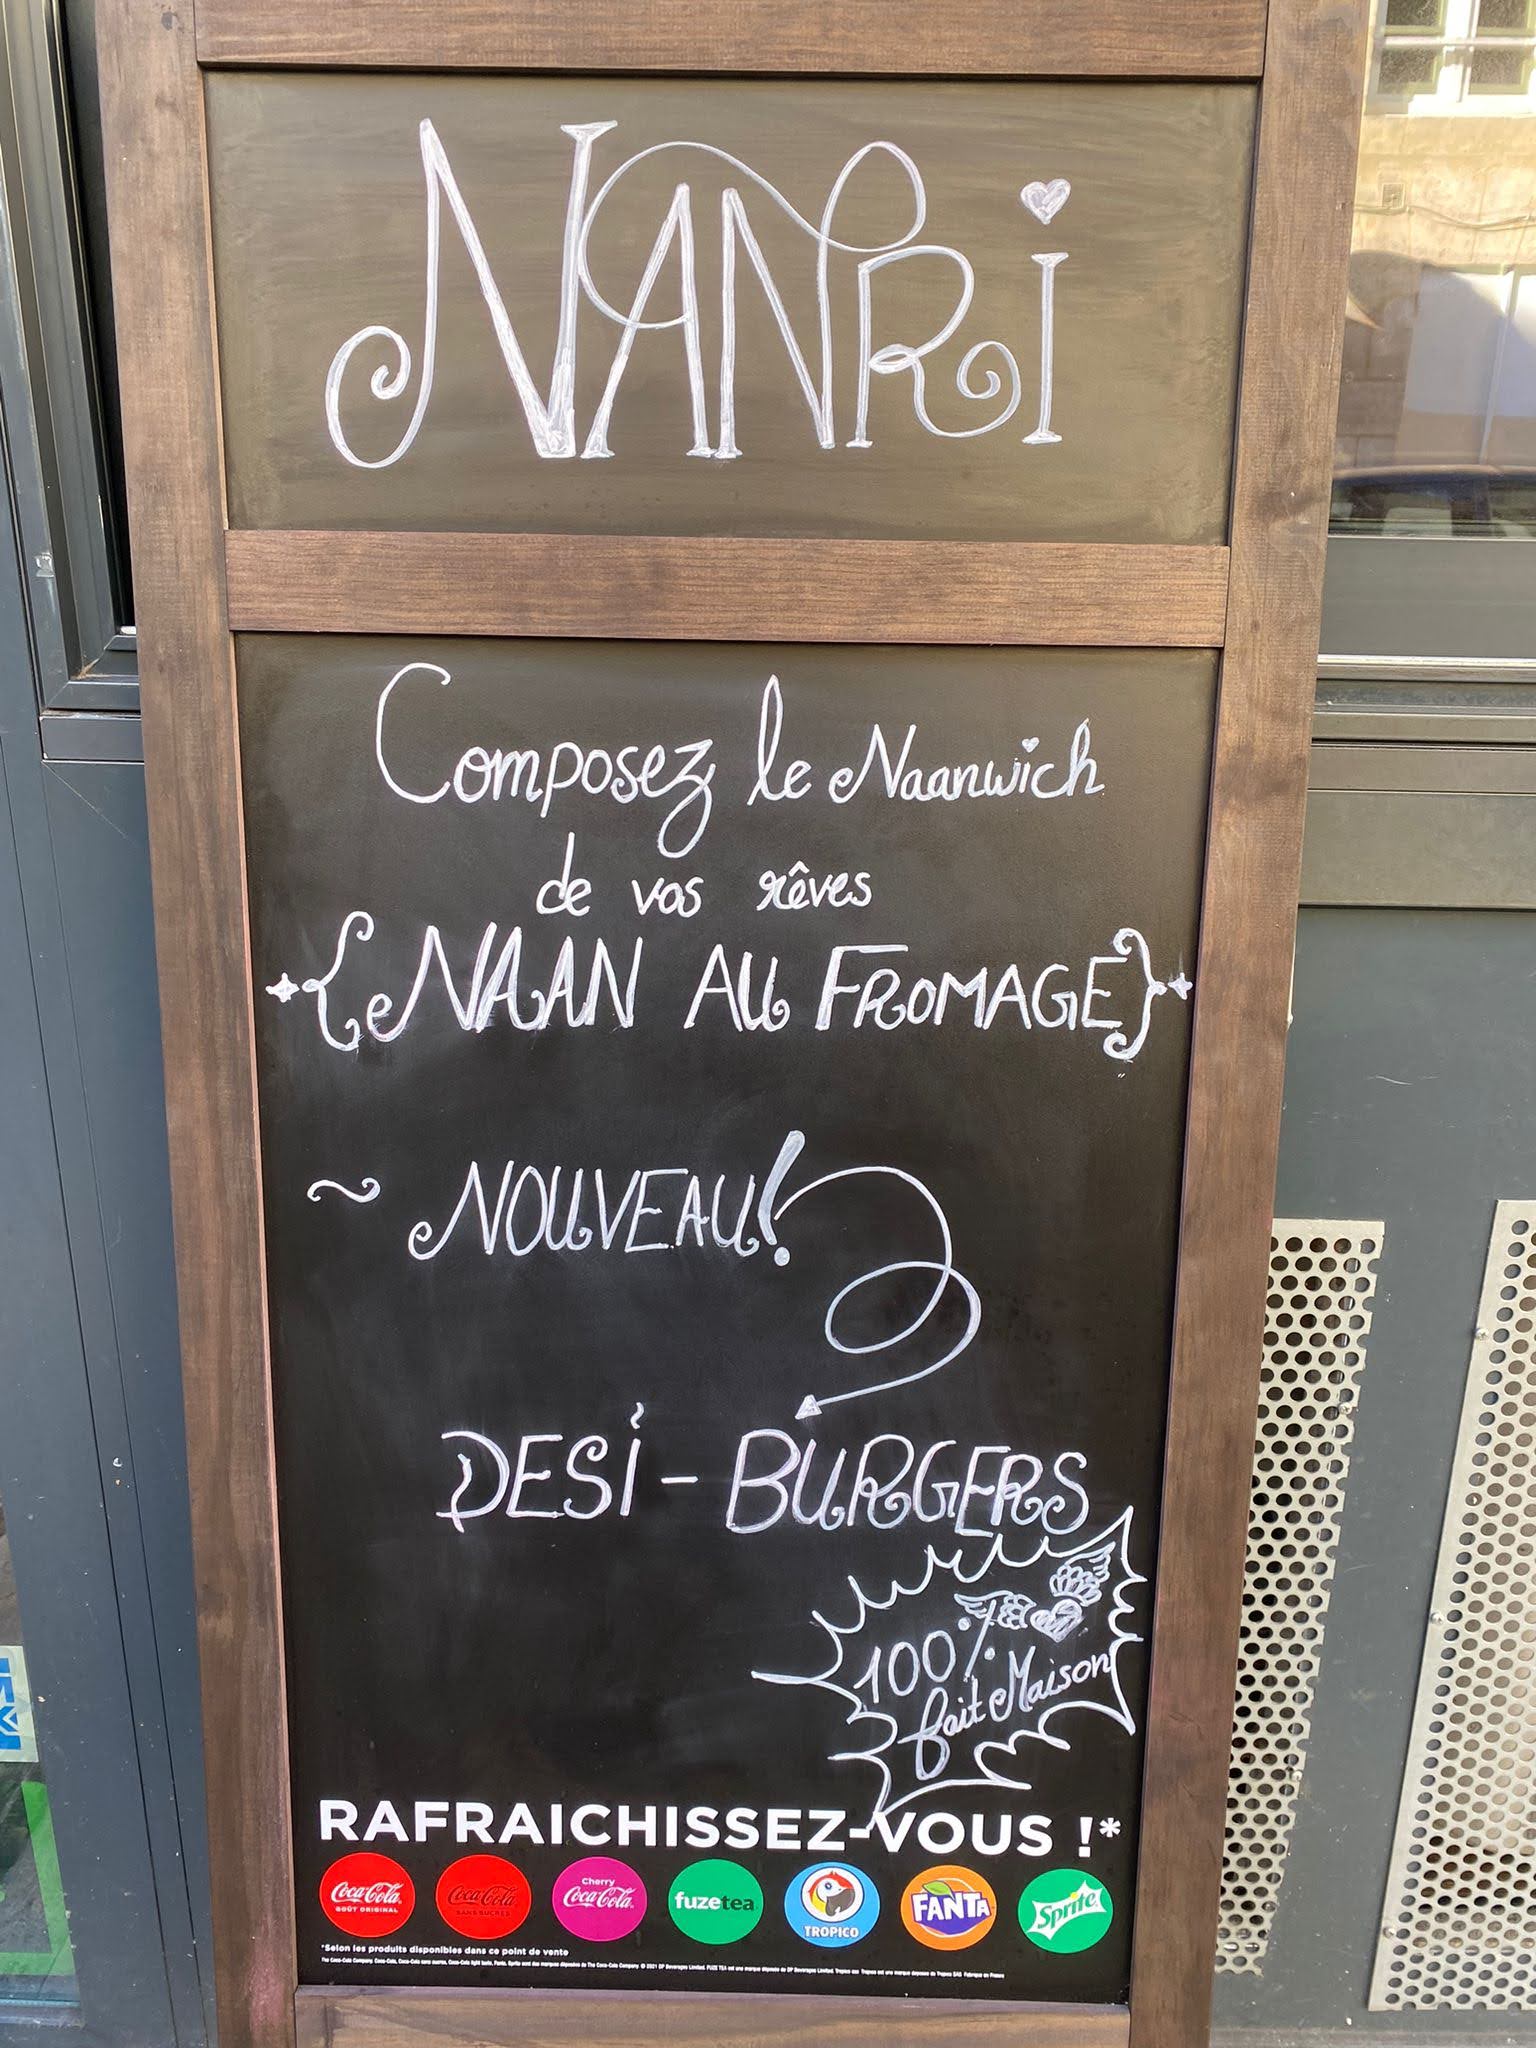 NANRi
Composez le Naanwich
de vos rêves
NAAN AU FROMAGE
~ NOUVEAU!
DESi - BURGERS
100%
fait Maison
RAFRAICHISSEZ-VOUS !*
Coca-Cola GOÛT ORIGINAL
Coca-Cola SANS SUCRES
Cherry Coca-Cola
fuzetea
TROPICO
FANTA
Sprite
*Selon les produits disponibles dans ce point de vente